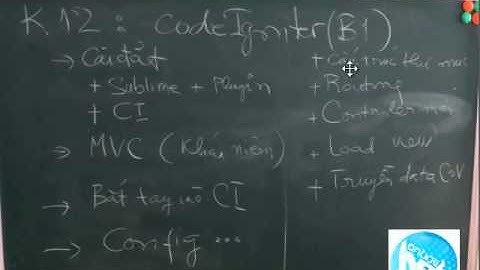 K12 : CodeIgniter (B1)
→ Cài đặt
+ Sublime + Plugin
+ CI
→ MVC (Khái niệm)
→ Bắt tay vào CI
→ Config ...
+ Cấu trúc thư mục
+ Routing
+ Controller
+ Load view
+ Truyền data C→V
online